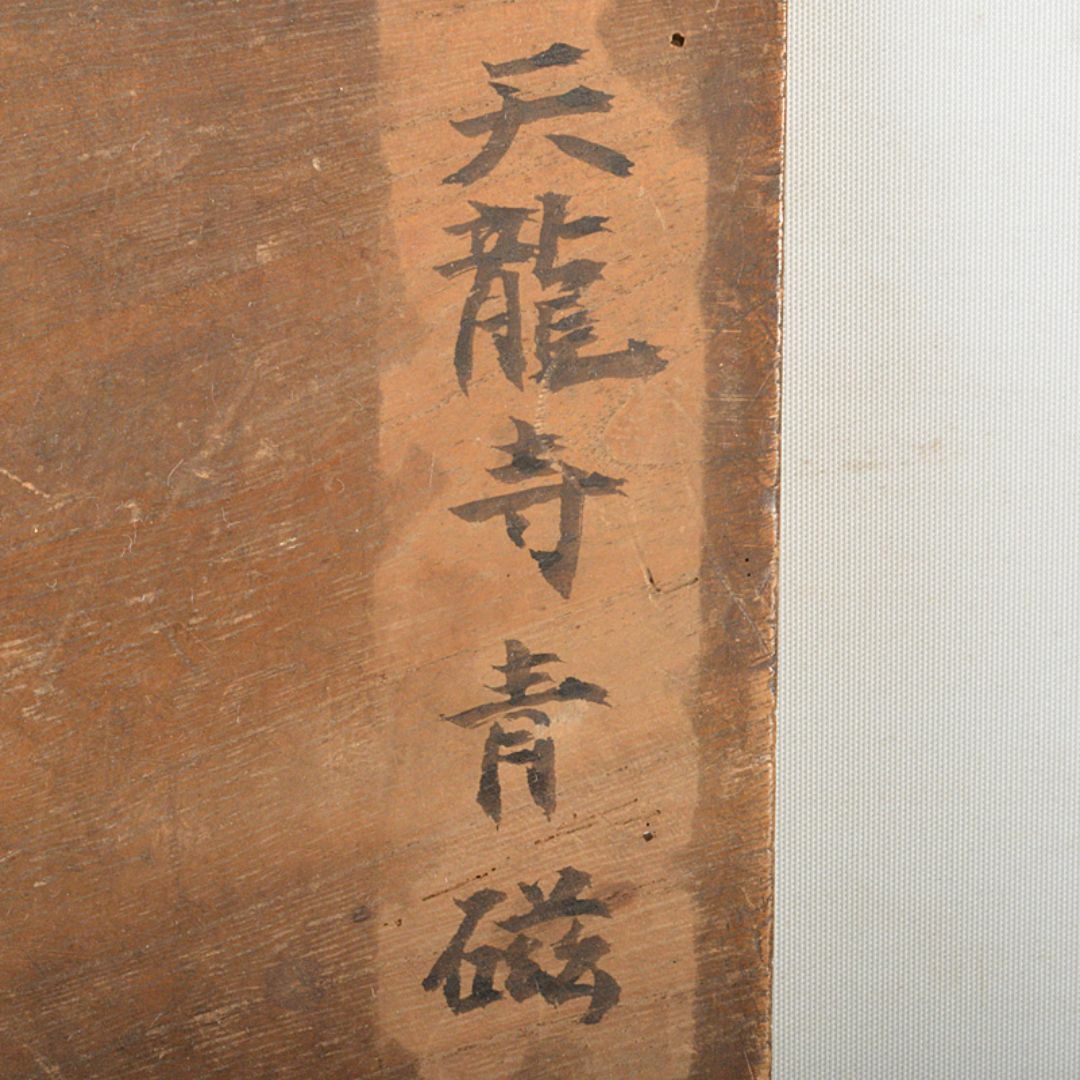 天龍寺青磁